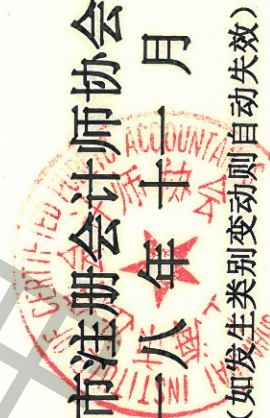 市注册会计师协会
十八年十一月
(如发生类别变动则自动失效)
CERTIFIED PUBLIC ACCOUNTA
INSTIT